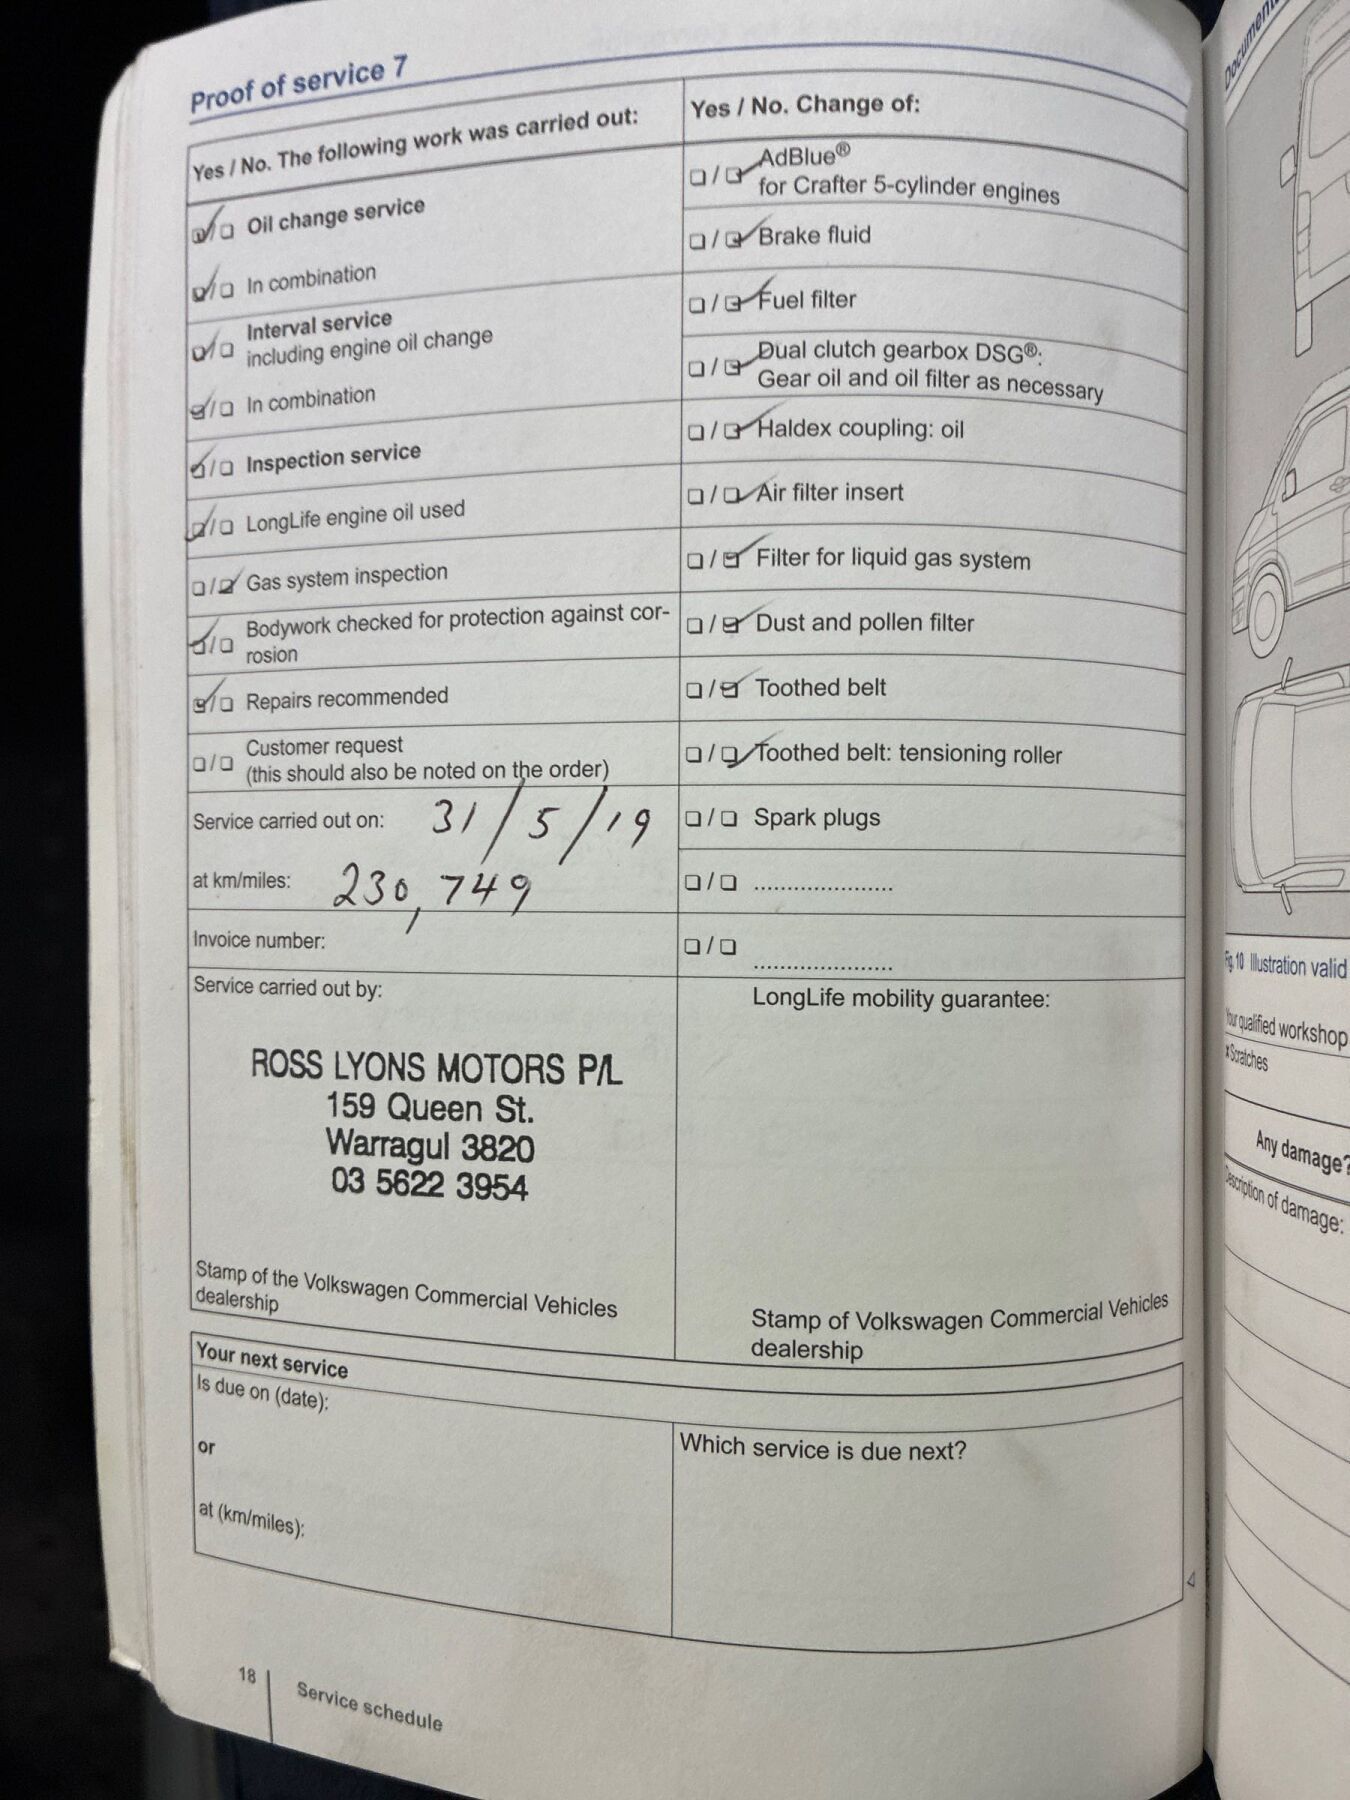 Proof of service 7
Yes / No. The following work was carried out:
Oil change service
In combination
Interval service
including engine oil change
In combination
Inspection service
LongLife engine oil used
Gas system inspection
Bodywork checked for protection against cor-
rosion
Repairs recommended
Customer request
(this should also be noted on the order)
Service carried out on: 31/5/19
at km/miles: 230,749
Invoice number:
Service carried out by:
ROSS LYONS MOTORS P/L
159 Queen St.
Warragul 3820
03 5622 3954
Stamp of the Volkswagen Commercial Vehicles
dealership
Yes / No. Change of:
AdBlue®
for Crafter 5-cylinder engines
Brake fluid
Fuel filter
Dual clutch gearbox DSG®:
Gear oil and oil filter as necessary
Haldex coupling: oil
Air filter insert
Filter for liquid gas system
Dust and pollen filter
Toothed belt
Toothed belt: tensioning roller
Spark plugs
.....................
.....................
LongLife mobility guarantee:
Stamp of Volkswagen Commercial Vehicles
dealership
Your next service
Is due on (date):
or
at (km/miles):
Which service is due next?
18
Service schedule
Fig. 10 Illustration valid
Your qualified workshop
Scratches
Any damage?
Description of damage: